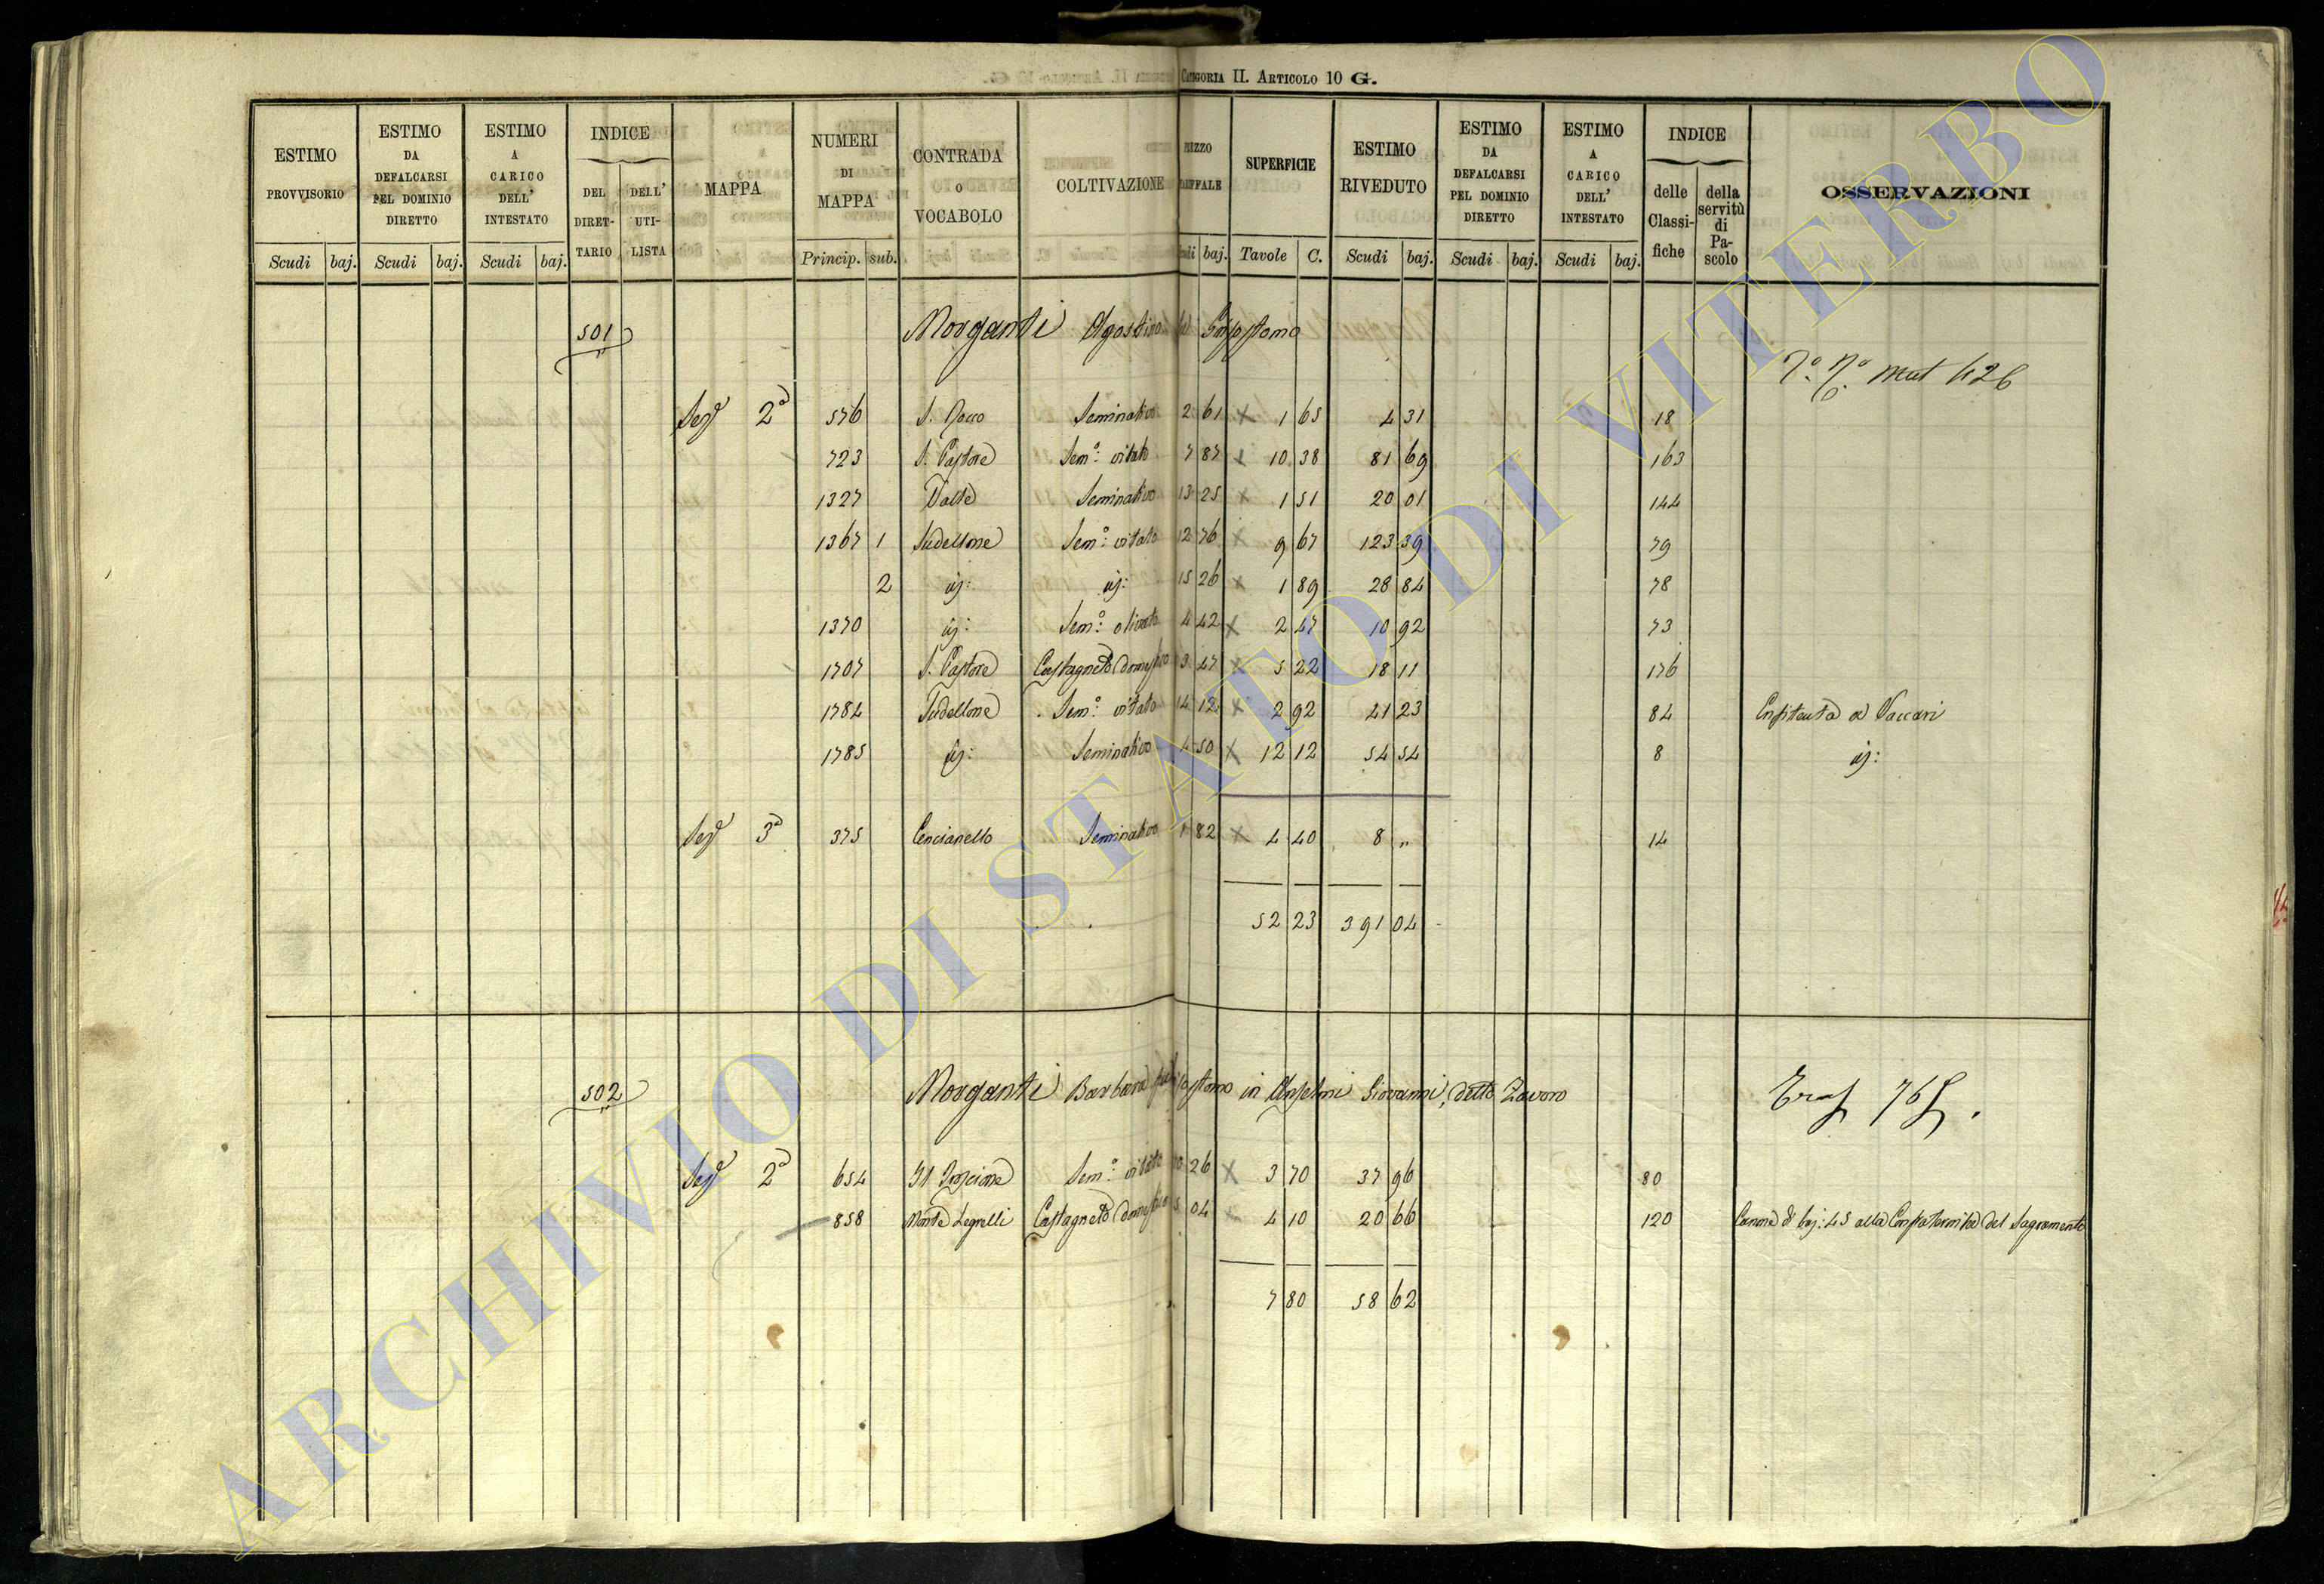 CATEGORIA II. ARTICOLO 10 G.
ESTIMO PROVVISORIO | ESTIMO DA DEFALCARSI PEL DOMINIO DIRETTO | ESTIMO A CARICO DELL' INTESTATO | INDICE DEL DIRETTARIO | DELL' UTILISTA | MAPPA | NUMERI DI MAPPA | CONTRADA O VOCABOLO | COLTIVAZIONE | SUPERFICIE | ESTIMO RIVEDUTO | ESTIMO DA DEFALCARSI PEL DOMINIO DIRETTO | ESTIMO A CARICO DELL' INTESTATO | INDICE delle Classifiche | della servitù di Pascolo | OSSERVAZIONI
Scudi baj. Scudi baj. Scudi baj. Princip. sub. baj. Tavole C. Scudi baj. Scudi baj. Scudi baj.
501 Morganti Agostino
mut 426
2ª 576 S. Rocco Seminativo 2 61 1 65 4 31 18
723 S. Pastore Sem.º vitato 7 87 10 38 81 69 163
1327 Valle Seminativo 13 25 1 51 20 01 144
1367 1 Sem.º vitato 12 76 9 67 123 39 79
2 id: id: 15 26 1 89 28 84 78
1370 id: Sem.º olivato 4 42 2 47 10 92 73
1707 S. Pastore Castagneto domestico 3 47 5 22 18 11 176
1784 Sem.º vitato 14 12 2 92 41 23 84 Enfiteuta a Vaccari
1785 id: Seminativo 4 50 12 12 54 54 8 id:
3ª 375 Cencianello Seminativo 1 82 4 40 8 „ 14
52 23 391 04
502 Morganti Barbara in Anselmi Giovanni, detto
2ª 654 Il Sem.º vitato 10 26 3 70 37 96 80
858 Monte Castagneto domestico 5 04 4 10 20 66 120 Canone di baj: 45 alla Confraternita del Sagramento
7 80 58 62
ARCHIVIO DI STATO DI VITERBO